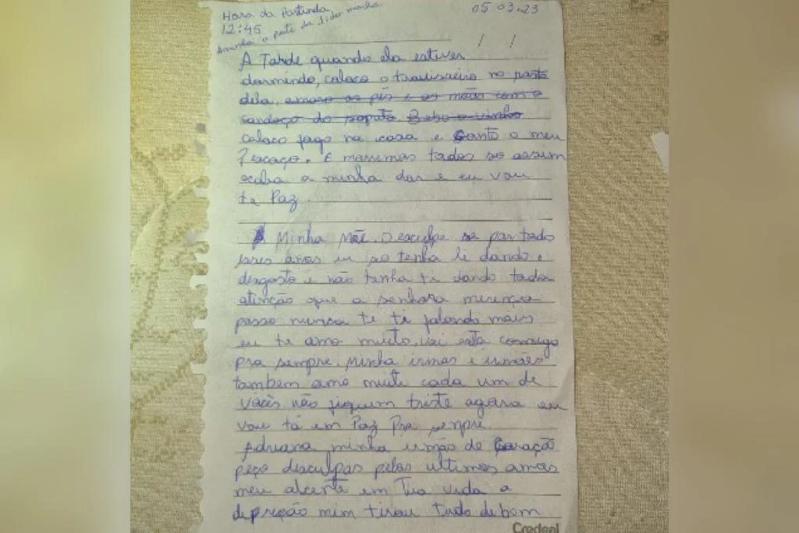 Hora da Partida
12:45
05 03.23
/ /
A Tarde quando ela estiver
dormindo, coloco o travisseiro no rosto
dela, amaro os pés e as mãos com o
do sapato Bebo o vinho
coloco fogo na casa e Canto o meu
E morremos todos so assim
acaba a minha dor e eu vou
te Paz.
Minha Mãe. Desculpe se por todo
esses anos eu so tenha le dando
desgosto e não tenha te dando toda
atenção que a senhora mereça
posso nunca te te falando mais
eu te amo muito, vai esta comigo
pra sempre, minha irmas e irmãos
tambem amo muito cada um de
vocês não fiquem triste agora eu
vou tá em Paz Pra sempre.
Adriana minha irmão de Coração
peço desculpas pelos ultimos anos
meu em Tua vida a
depreção mim tirou tudo de bom
Credeal